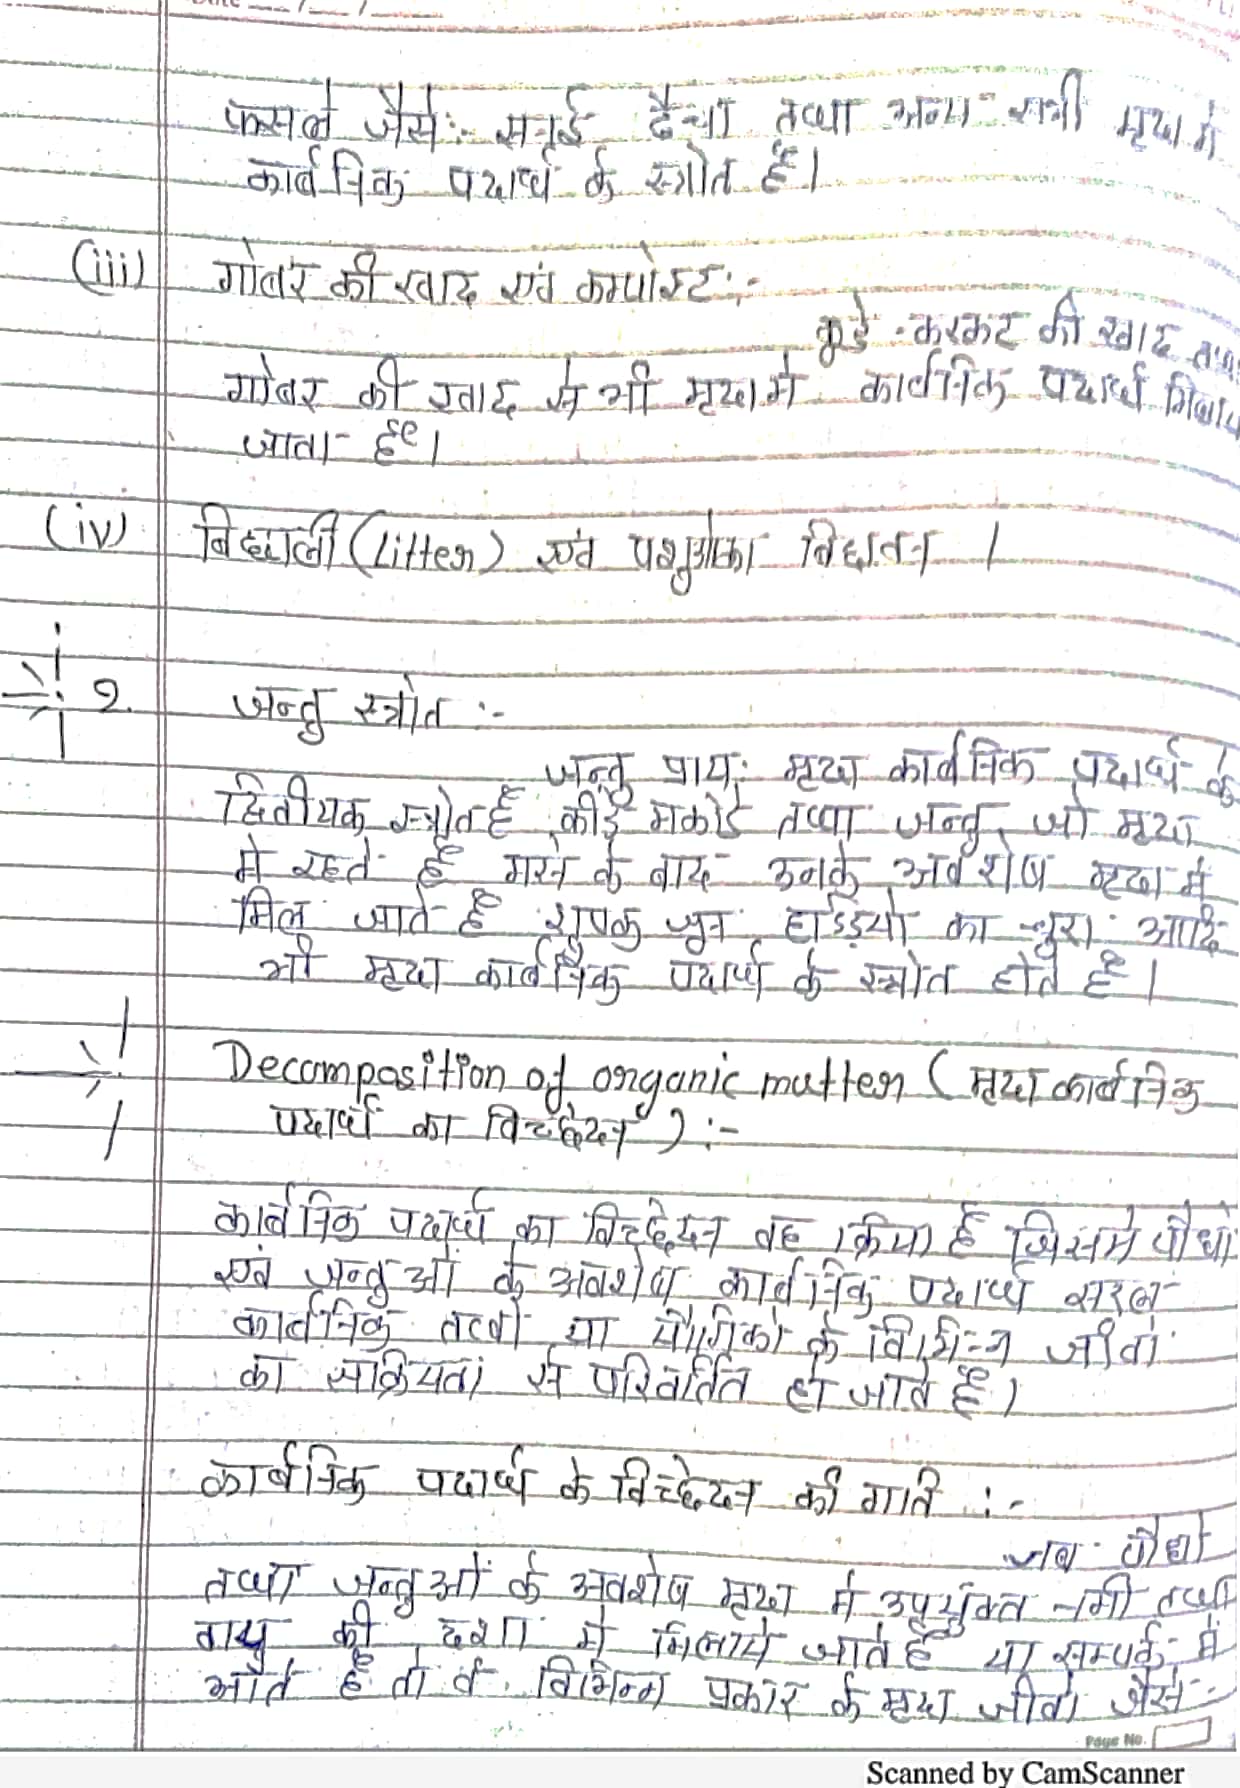 Date
फसले जैसे:- सनई ढैंचा तथा अन्य सभी मृदा मे
कार्बनिक पदार्थ के स्त्रोत हैं।
(iii) गोबर की खाद एवं कम्पोस्ट:-
कूडे-करकट की खाद तथा
गोबर की खाद से भी मृदा मे कार्बनिक पदार्थ मिलाय
जाता है।
(iv) बिछाली (Litter) एवं पशुओका बिछावन।
2. जन्तु स्त्रोत :-
जन्तु प्राय: मृदा कार्बनिक पदार्थ के
द्वितीयक स्त्रोत है कीड़े मकोडे तथा जन्तु जो मृदा
मे रहते है मरने के बाद उनके अवशेष मृदा मे
मिल जाते है हाड्डियो का चुरा आदि
भी मृदा कार्बनिक पदार्थ के स्त्रोत होते है।
Decomposition of organic mutter (मृदा कार्बनिक
पदार्थ का विच्छेदन) :-
कार्बनिक पदार्थ का विच्छेदन वह क्रिया है जिसमे पौधो
एवं जन्तुओं के अवशेष कार्बनिक पदार्थ सरल
कार्बनिक तत्वो या यौगिको के विभिन्न जीवों
का सक्रियता से परिवर्तित हो जाते हैं।
कार्बनिक पदार्थ के विच्छेदन की गति :-
जब पौधो
तथा जन्तुओं के अवशेष मृदा मे उपर्युक्त नमी तथा
वायु की दशा मे मिलाये जाते है या सम्पर्क मे
आते है तो वे विभिन्न प्रकार के मृदा जीवो जैसे
Page No.
Scanned by CamScanner